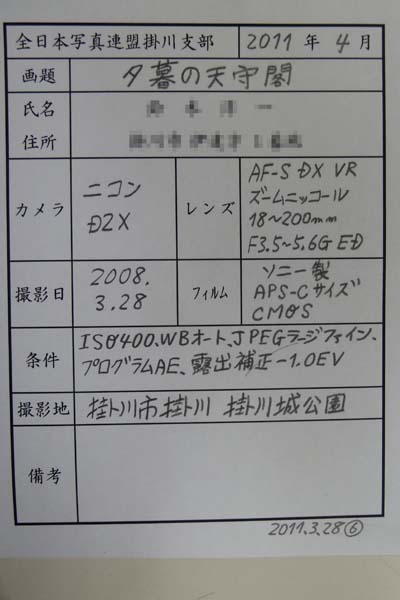 全日本写真連盟掛川支部 2011 年 4 月
画題 夕暮の天守閣
氏名
住所
カメラ ニコン D2X
レンズ AF-S DX VR
ズームニッコール
18~200mm
F3.5~5.6G ED
撮影日 2008.
3.28
フィルム ソニー製
APS-Cサイズ
CMOS
条件 ISO400、WBオート、JPEGラージファイン、
プログラムAE、露出補正-1.0EV
撮影地 掛川市掛川 掛川城公園
備考
2011.3.28⑥